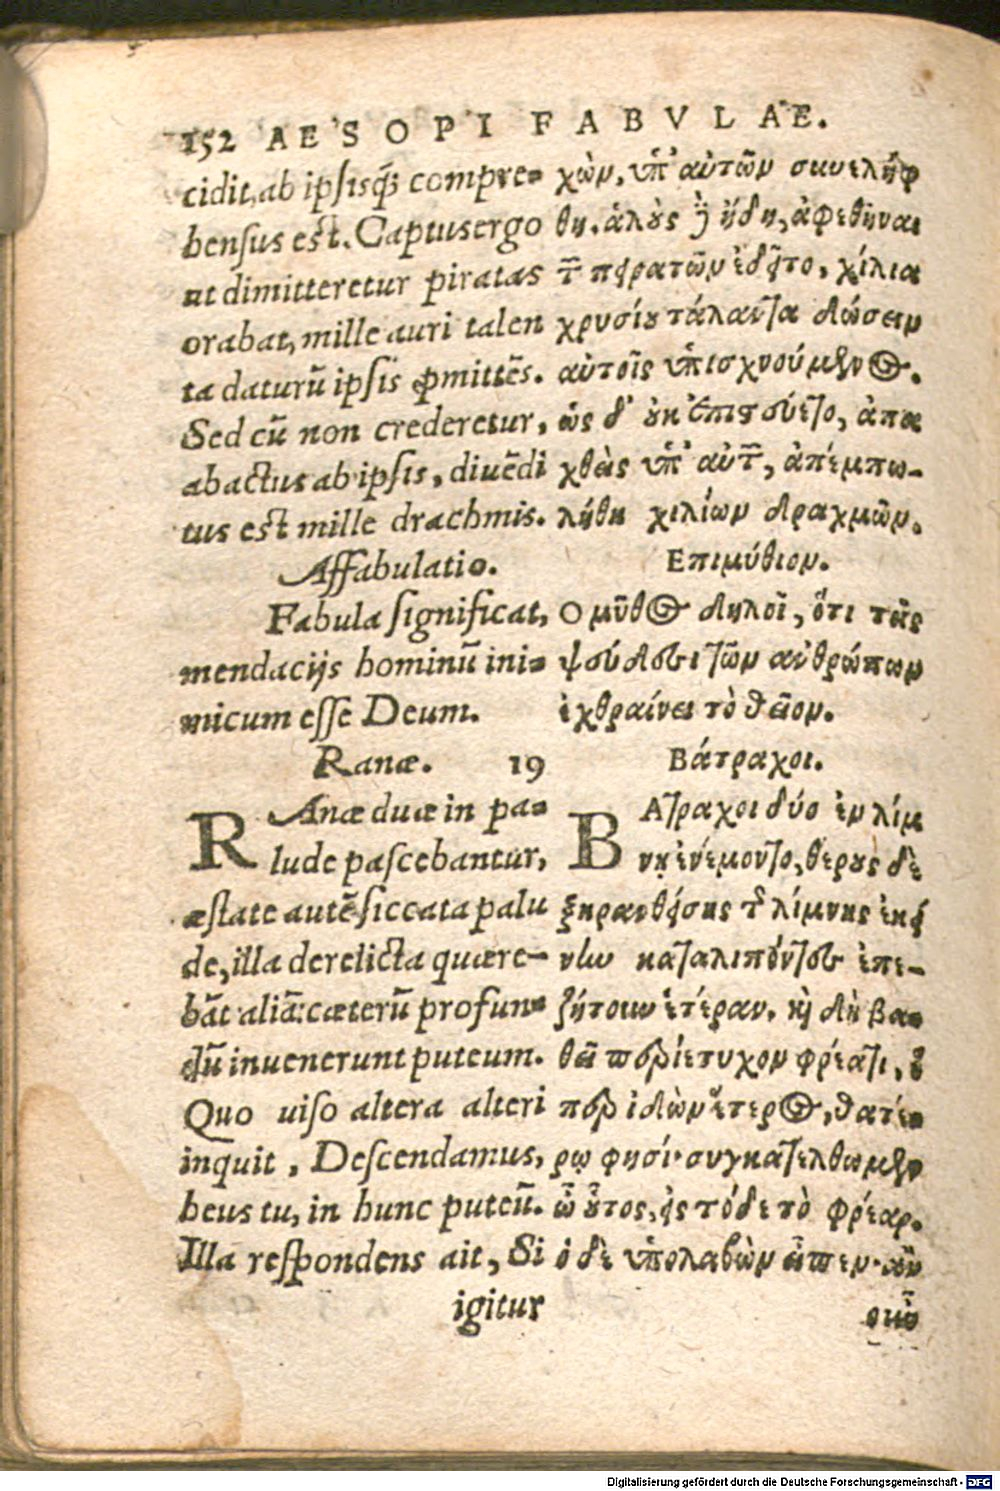 152 AESOPI FABVLAE.
cidit, ab ipsisq́; compre-
hensus est. Captus ergo
ut dimitteretur piratas
orabat, mille auri talen
ta daturũ ipsis ꝓmittẽs.
Sed cũ non crederetur,
abactus ab ipsis, diuẽdi
tus est mille drachmis.
Affabulatio.
Fabula significat,
mendacijs hominũ ini-
micum esse Deum.
Ranæ. 19
RAnæ duæ in pa-
lude pascebantur,
æstate autẽ siccata palu
de, illa derelicta quære-
bãt aliã: cæterũ profun-
dũ inuenerunt puteum.
Quo uiso altera alteri
inquit, Descendamus,
heus tu, in hunc puteũ.
Illa respondens ait, Si
igitur
χὼν, ὑπ' αὐτῶν συνελήφ
θη. ἁλοὺς δὲ ἤδη, ἀφεθῆναι
τῶν πειρατῶν ἐδεῖτο, χίλια
χρυσίου τάλαντα δώσειν
αὐτοῖς ὑπισχνούμενος.
ὡς δ' οὐκ ἐπιστεύετο, ἀπα
χθεὶς ὑπ' αὐτῶν, ἀπεμπω-
λήθη χιλίων δραχμῶν.
Επιμύθιον.
Ο μῦθος δηλοῖ, ὅτι ταῖς
ψεύδεσι τῶν ἀνθρώπων
ἐχθραίνει τὸ θεῖον.
Βάτραχοι.
ΒΑτραχοι δύο ἐν λίμ
νῃ ἐνέμοντο, θέρους δὲ
ξηρανθείσης τῆς λίμνης ἐκεί
νην καταλιπόντες ἐπε-
ζήτουν ἑτέραν. καὶ δὴ βα-
θεῖ περιέτυχον φρέατι, ὃ
περ ἰδὼν ἕτερος, θατέ-
ρῳ φησί· συγκατέλθωμεν
ὦ οὗτος, εἰς τόδε τὸ φρέαρ.
ὁ δὲ ὑπολαβὼν εἶπεν· ἂν
οὖν